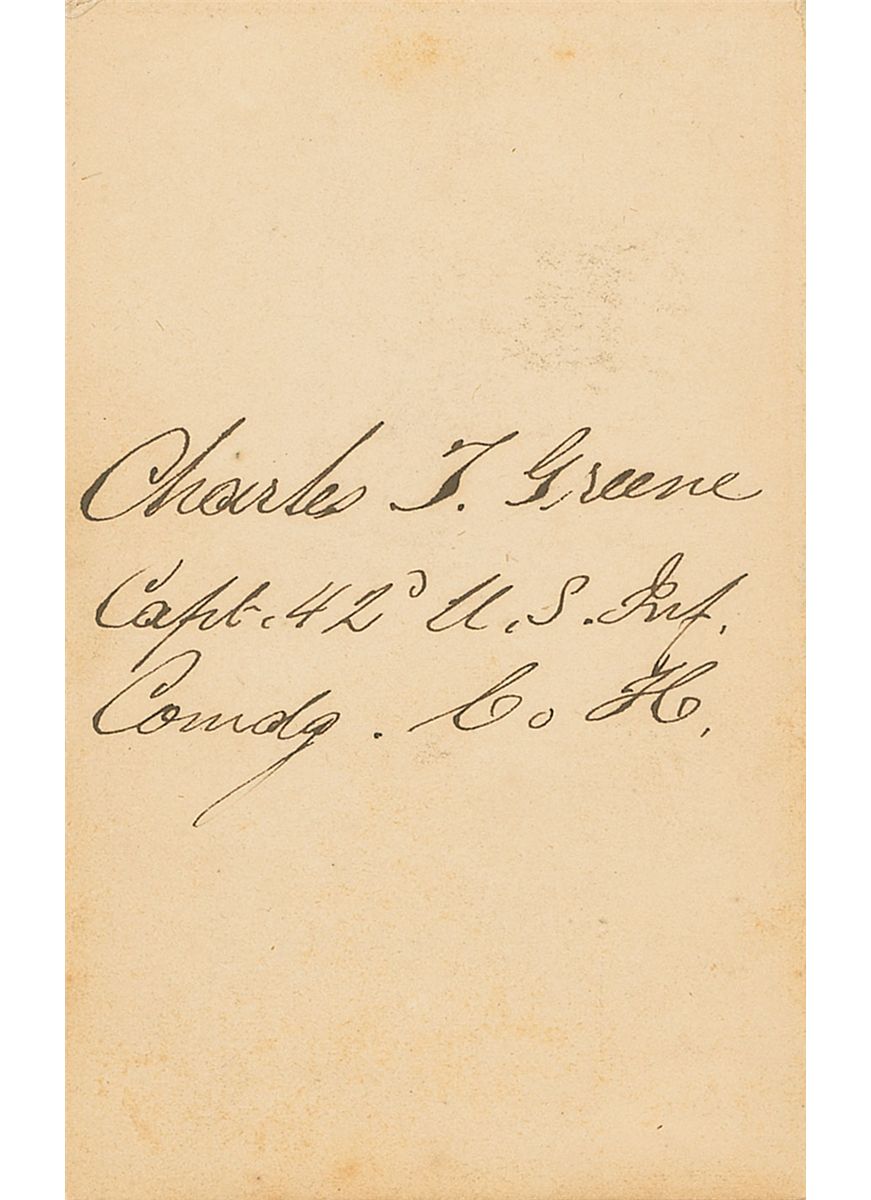 Charles T. Greene
Capt. 42d U.S. Inf.
Comdg. Co H.